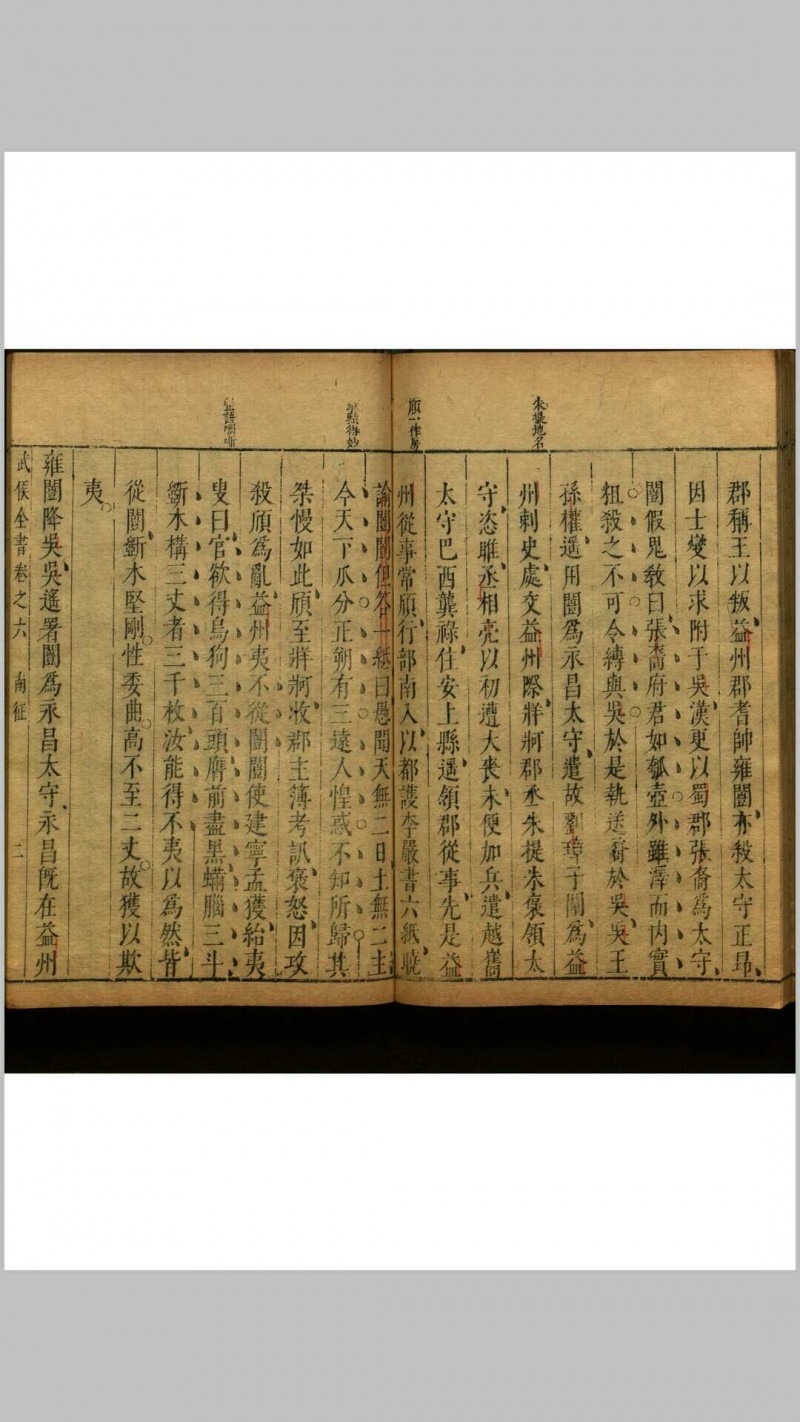 朱提地名
頎一作房
郡稱王以叛益州郡耆帥雍闓亦殺太守正昂
因士燮以求附于吳漢更以蜀郡張裔爲太守
闓假鬼敎曰張裔府君如瓠壺外雖澤而内實
粗殺之不可令縛與吳於是執送裔於吳吳王
孫權遥用闓爲永昌太守遣故劉璋子闡爲益
州刺史處交益州際牂牁郡丞朱提朱褒領太
守恣睢丞相亮以初遭大喪未便加兵遣越嶲
太守巴西龔祿住安上縣遥領郡從事先是益
州從事常頎行部南入以都護李嚴書六紙曉
諭闓闓但答一紙曰愚聞天無二日土無二主
今天下瓜分正朔有三遠人惶惑不知所歸其
桀慢如此頎至牂牁收郡主簿考訊褒怒因攻
殺頎爲亂益州夷不從闓闓使建寧孟獲紿夷
叟曰官欲得烏狗三百頭膺前盡黑蟎腦三斗
斷木構三丈者三千枚汝能得不夷以爲然皆
從闓斷木堅剛性委曲高不至二丈故獲以欺
夷
雍闓降吳吳遙署闓爲永昌太守永昌既在益州
武侯全書卷之六 南征 二